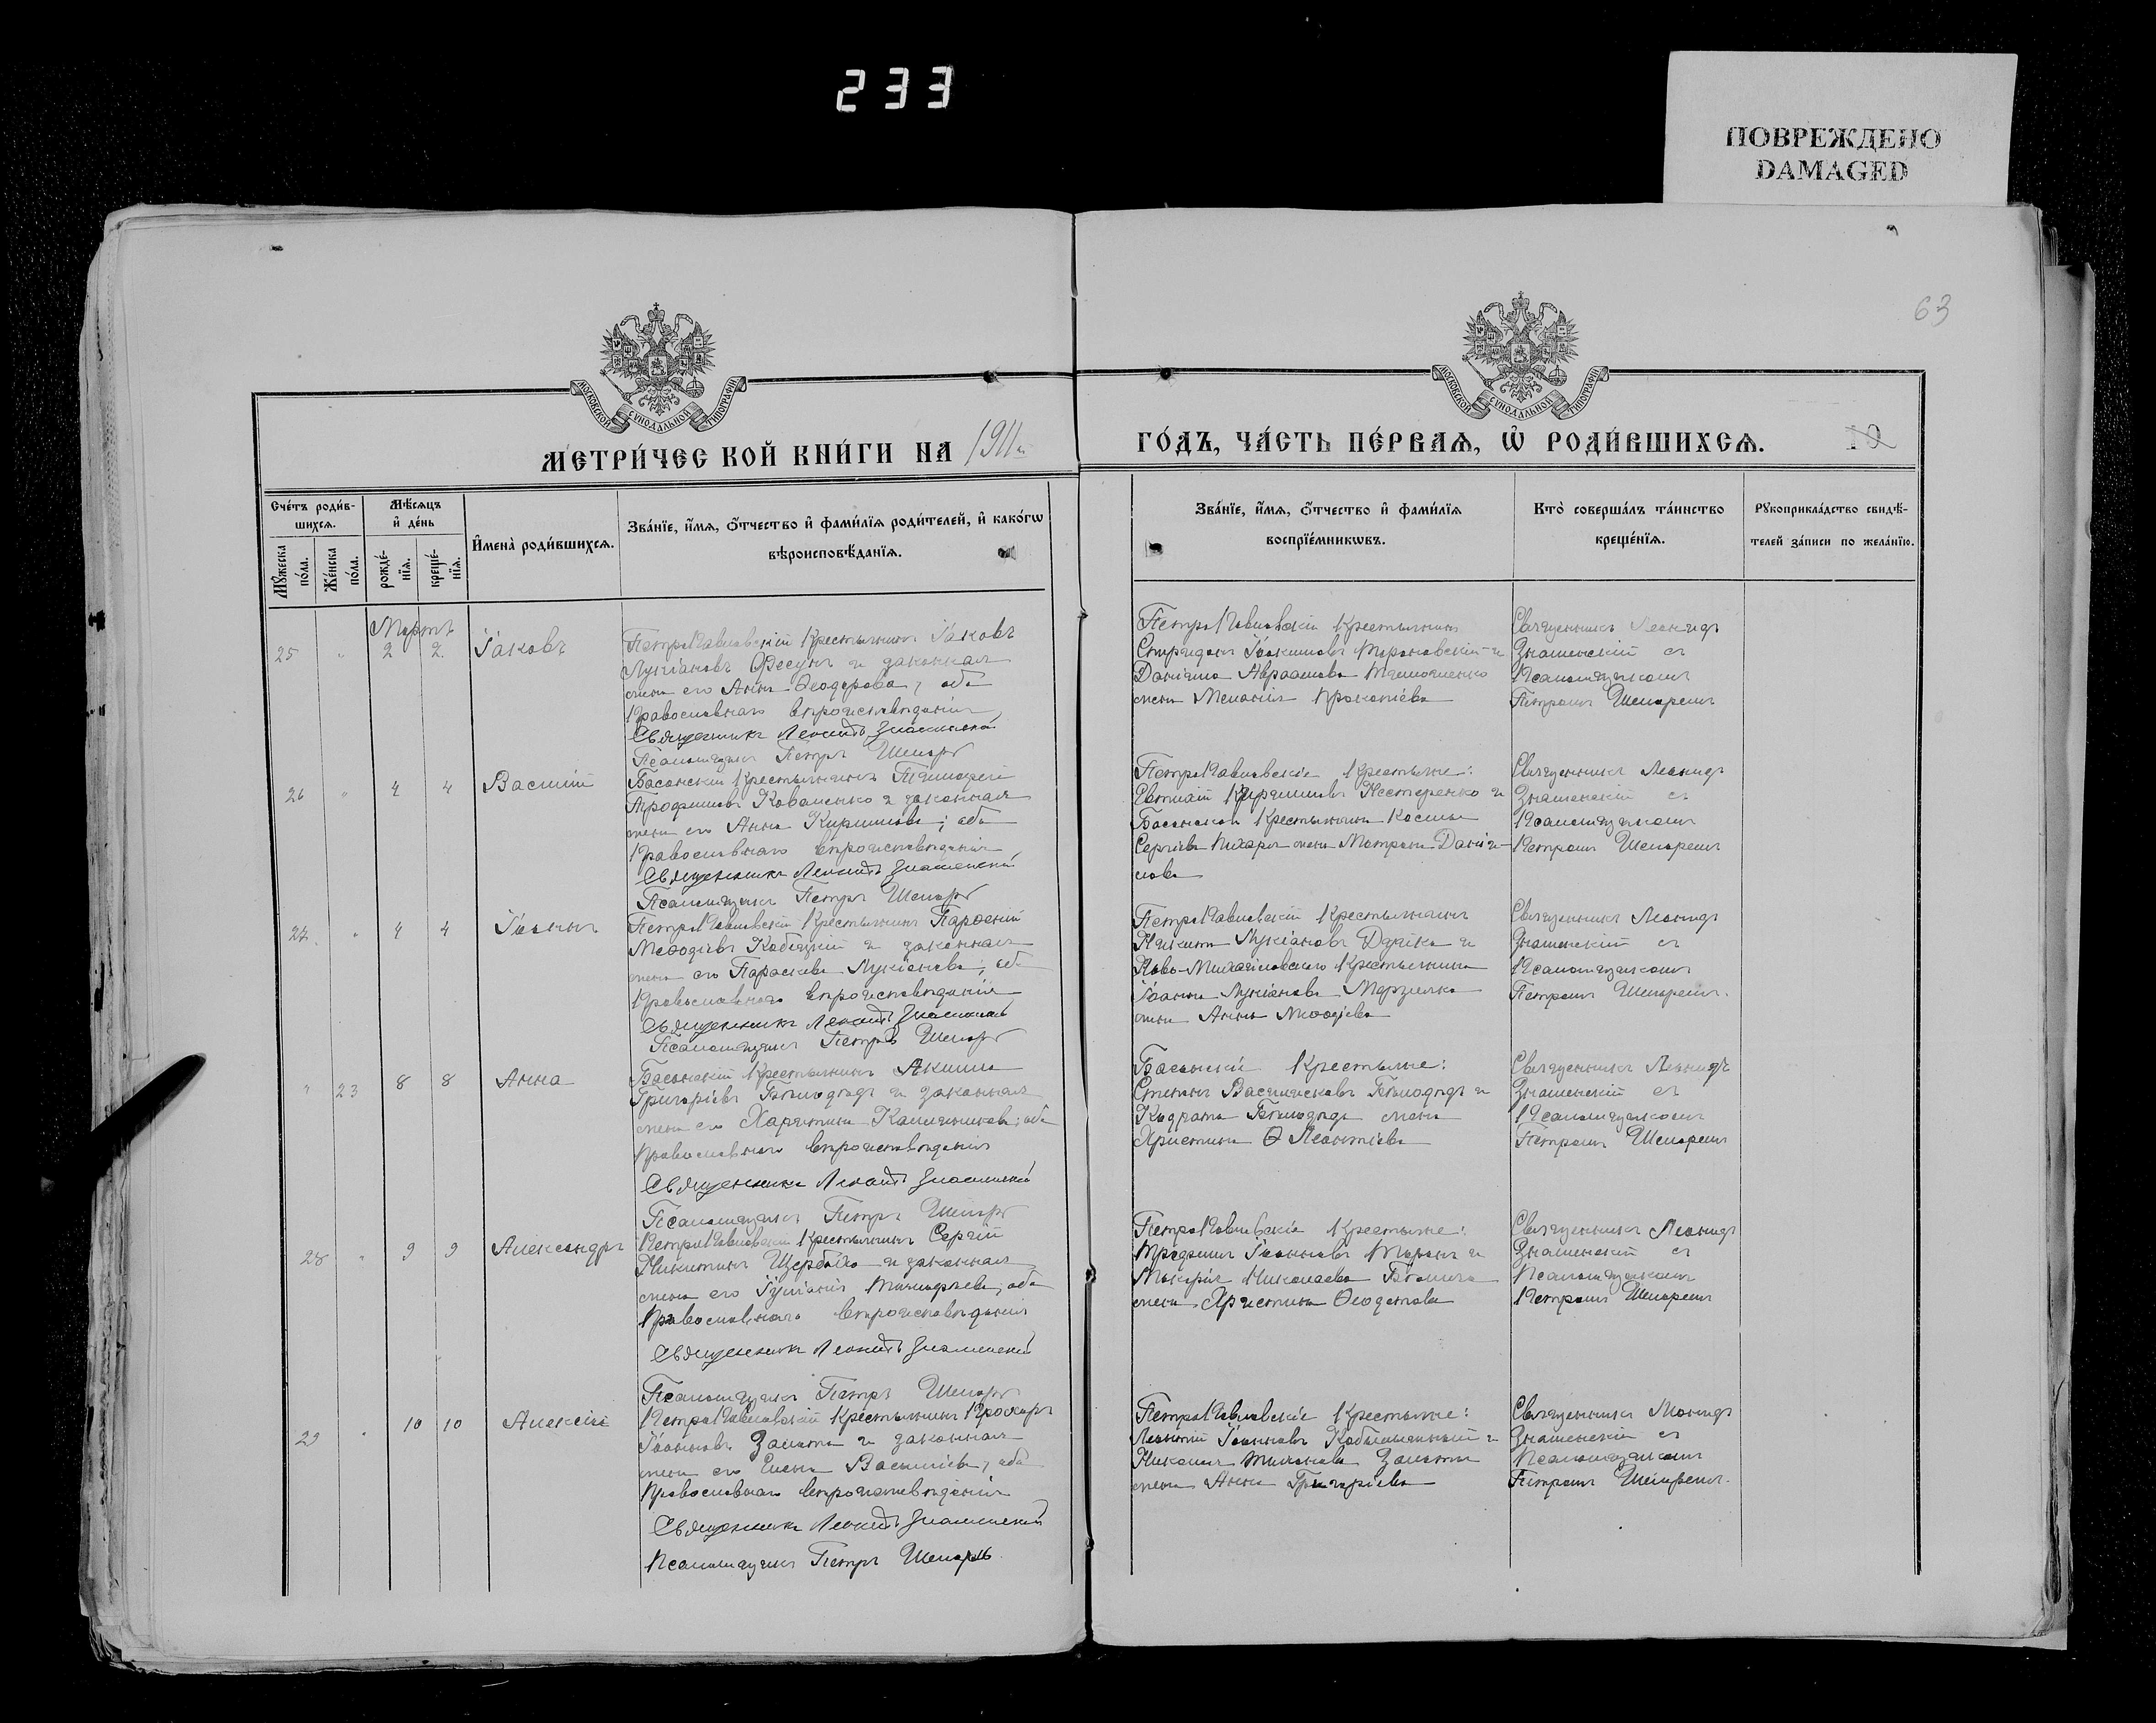 233
ПОВРЕЖДЕНО
DAMAGED
63
МОСКОВСКОЙ СУНОДАЛЬНОЙ ТИПОГРАФІИ
МОСКОВСКОЙ СУНОДАЛЬНОЙ ТИПОГРАФІИ
МЕТРИ́ЧЕСКОЙ КНИ́ГИ НА 1911
ГО́ДЪ, ЧА́СТЬ ПЕ́РВАѦ, Ѡ҆ РОДИ́ВШИХСѦ.
10
Сче́тъ роди́в-
шихсѧ.
Мꙋ́жеска по́ла.
Же́нска по́ла.
Мѣ́сѧцъ
и҆ де́нь
рожде́-
нїѧ.
креще́-
нїѧ.
И҆мена̀ роди́вшихсѧ.
Зва́нїе, и҆́мѧ, ѻ҆́тчество и҆ фами́лїѧ роди́телей, и҆ како́гѡ
вѣроисповѣ́данїѧ.
Зва́нїе, и҆́мѧ, ѻ҆́тчество и҆ фами́лїѧ
воспрїе́мникѡвъ.
Кто̀ соверша́лъ та́инство
креще́нїѧ.
Рꙋкоприкла́дство свидѣ́-
телей за́писи по жела́нїю.
Мартъ
25 " 2 2 Іаковъ
Петро Павловскій крестьянинъ Іаковъ
Лукіановъ и законная
жена его Анна Ѳеодорова, оба
православнаго вѣроисповѣданія
Священникъ Леонидъ Знаменскій
Псаломщикъ Петръ Шепарь
Петро Павловскій крестьянинъ
Спиридонъ Іоакимовъ и
Даніила Авраамова Тимошенко
жена Меланія Прокопіева
Священникъ Леонидъ
Знаменскій съ
Псаломщикомъ
Петромъ Шепаремъ
26 " 4 4 Василій
Басанскій крестьянинъ Тимофей
Трофимовъ Коваленко и законная
жена его Анна Кириллова; оба
православнаго вѣроисповѣданія
Священникъ Леонидъ Знаменскій
Псаломщикъ Петръ Шепарь
Петро Павловскіе крестьяне:
Евтихій Кирилловъ Нестеренко и
Басанскаго крестьянина Космы
Сергіева жена Матрона Дани-
лова
Священникъ Леонидъ
Знаменскій съ
Псаломщикомъ
Петромъ Шепаремъ
27 " 4 4 Іоаннъ
Петро Павловскій крестьянинъ Парѳеній
Меѳодіевъ Кобецкій и законная
жена его Параскева Лукіанова; оба
православнаго вѣроисповѣданія
Священникъ Леонидъ Знаменскій
Псаломщикъ Петръ Шепарь
Петро Павловскій крестьянинъ
Никита Лукіановъ и
Ново-Михайловскаго крестьянина
Іоанна Лукіанова
жена Анна Меѳодіева
Священникъ Леонидъ
Знаменскій съ
Псаломщикомъ
Петромъ Шепаремъ.
" 23 8 8 Анна
Басанскій крестьянинъ Акимъ
Григоріевъ Бѣлодѣдъ и законная
жена его Харитина Каллиникова; оба
православнаго вѣроисповѣданія
Священникъ Леонидъ Знаменскій
Псаломщикъ Петръ Шепарь
Басанскіе крестьяне:
Стефанъ Бѣлодѣдъ и
Кодрата Бѣлодѣдъ жена
Христина Леонтіева
Священникъ Леонидъ
Знаменскій съ
Псаломщикомъ
Петромъ Шепаремъ
28 " 9 9 Александръ
Петро Павловскій крестьянинъ Сергій
Никитинъ Щербайко и законная
жена его Іуліанія Тимофеева, оба
православнаго вѣроисповѣданія
Священникъ Леонидъ Знаменскій
Псаломщикъ Петръ Шепарь
Петро Павловскіе крестьяне:
Трофимъ Іоанновъ Таранъ и
Макарія Николаева
жена Христина Ѳеодотова
Священникъ Леонидъ
Знаменскій съ
Псаломщикомъ
Петромъ Шепаремъ
29 " 10 10 Алексій
Петро Павловскій крестьянинъ Прохоръ
Іоанновъ и законная
жена его Елена Василіева, оба
православнаго вѣроисповѣданія
Священникъ Леонидъ Знаменскій
Псаломщикъ Петръ Шепарь
Петро Павловскіе крестьяне:
Леонтій Іоанновъ и
жена Анна Григоріева
Священникъ Леонидъ
Знаменскій съ
Псаломщикомъ
Петромъ Шепаремъ.